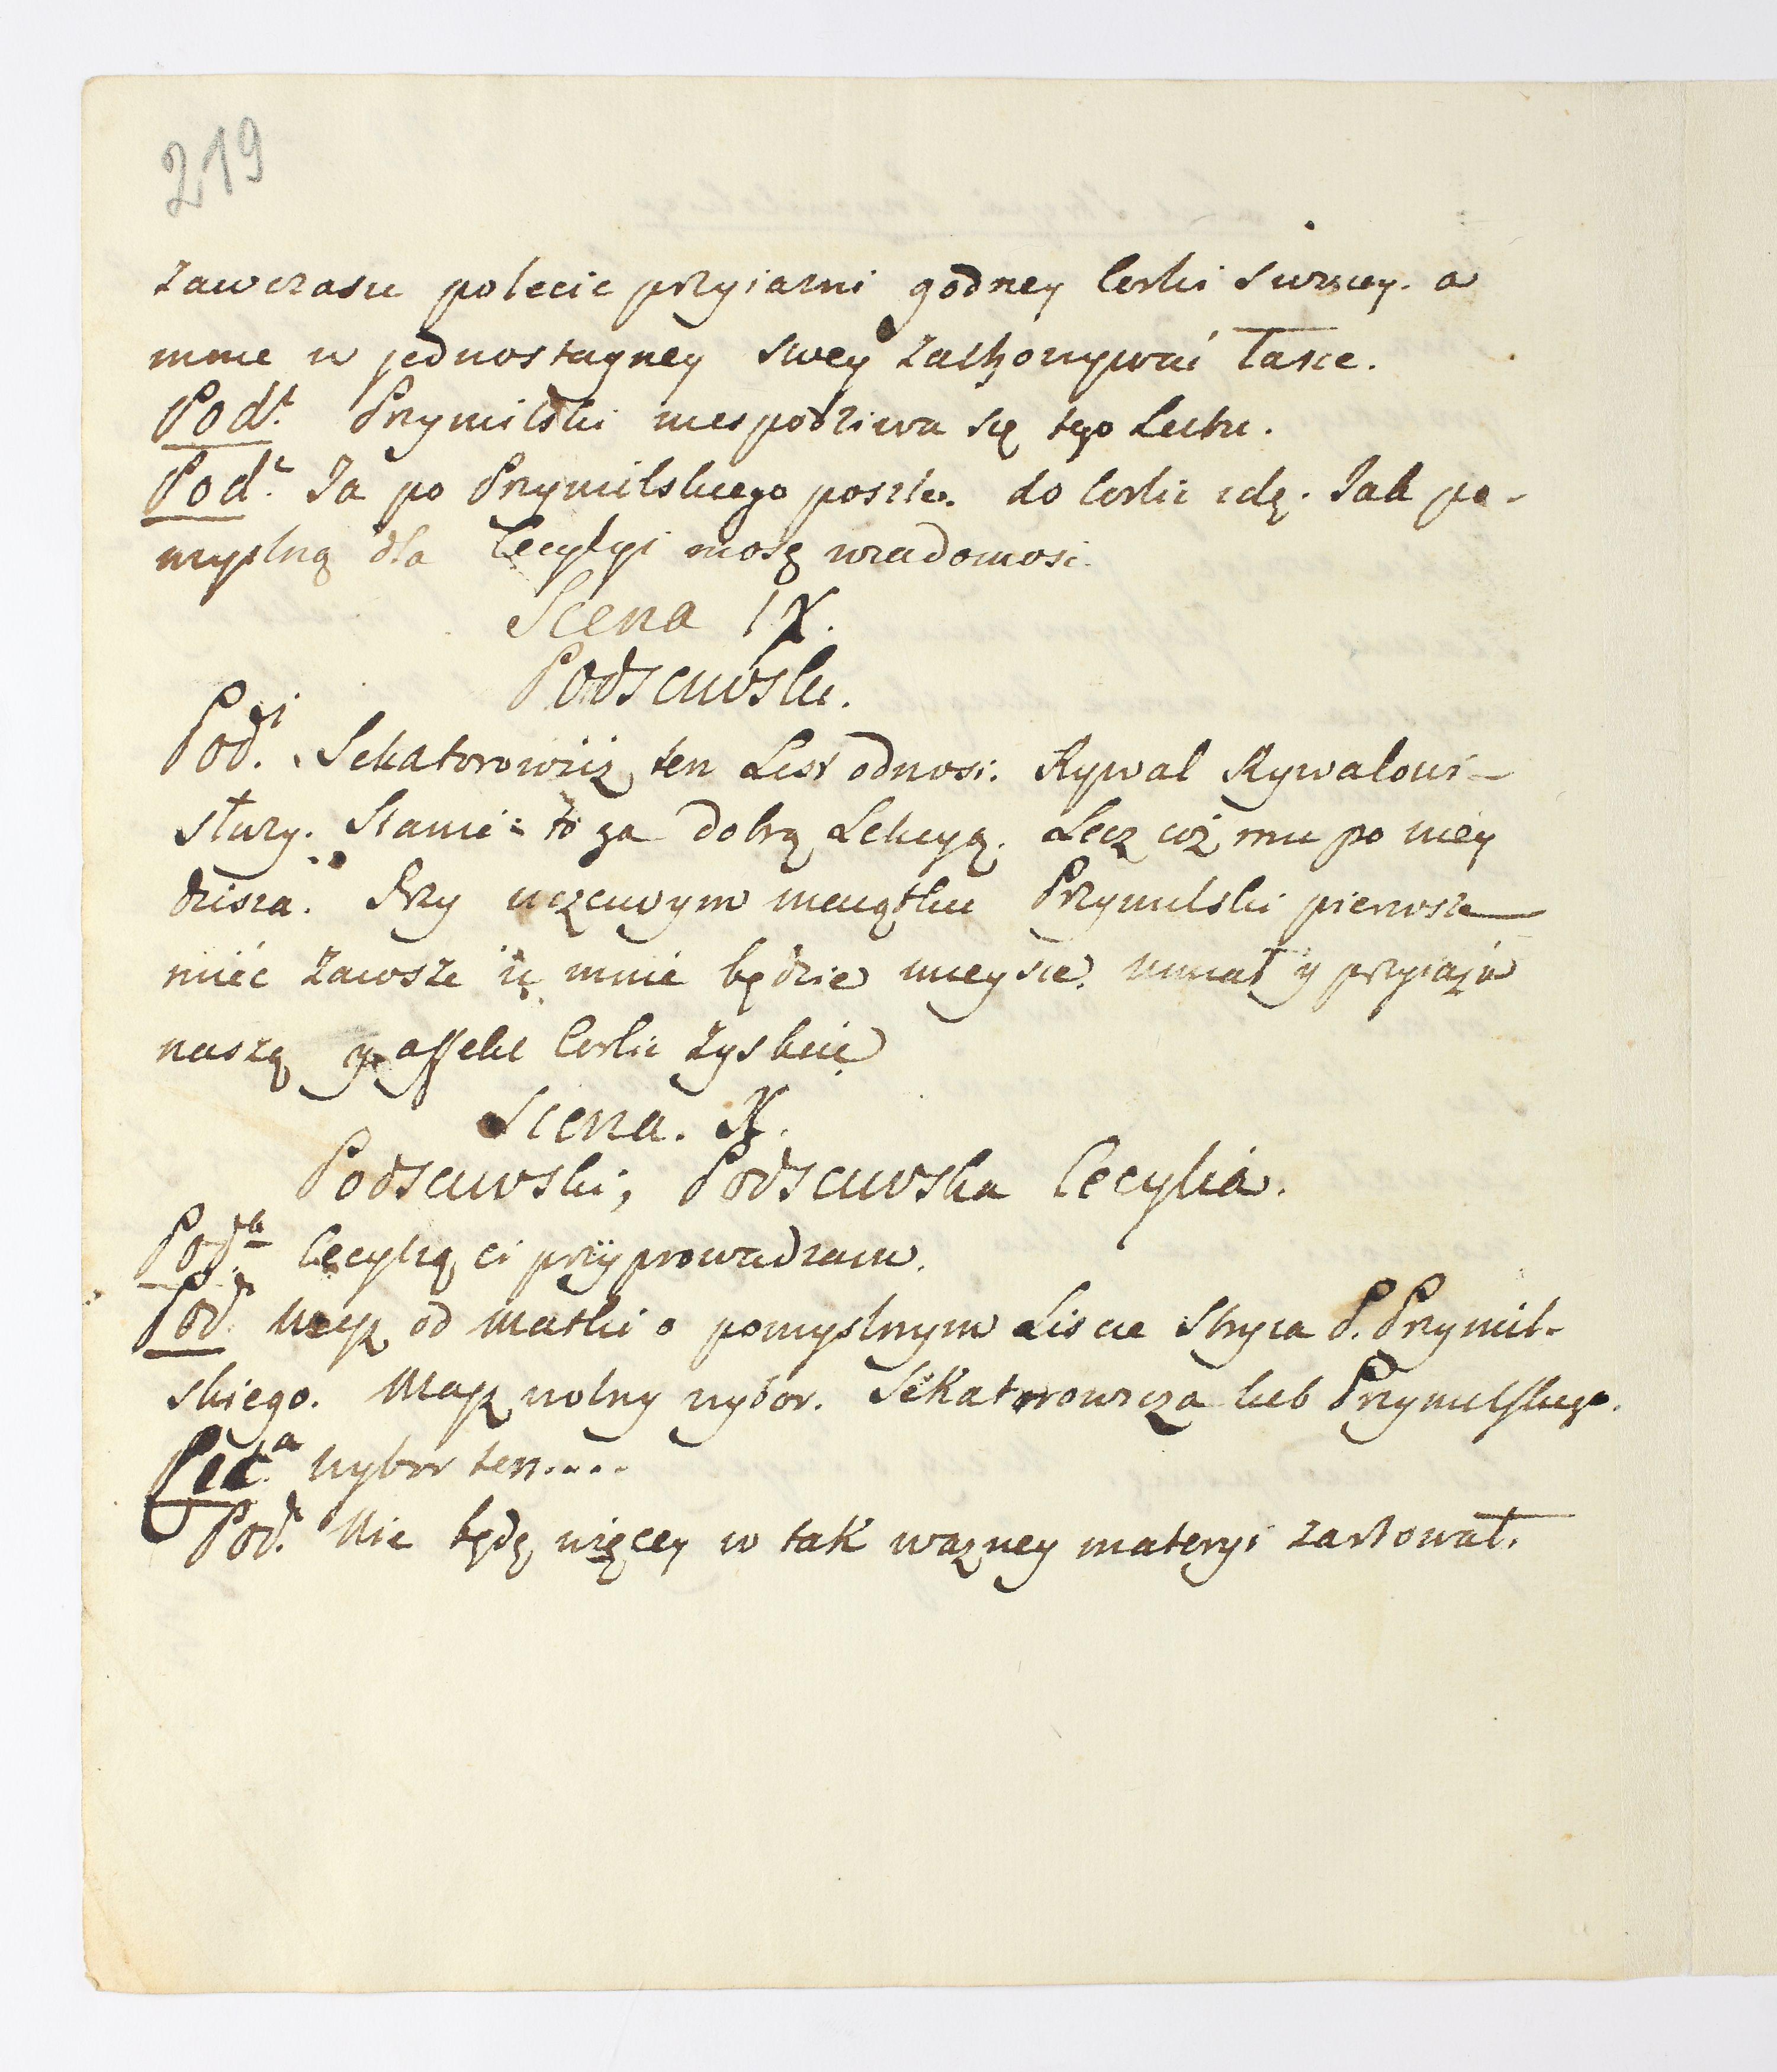 219
zawczasu polecić przyiazni godney Corki swoiey. a
mnie w jednostayney swey zachowywać łasce.
Pod.ⁱ Przymilski niespodziwa się tego Listu.
Pod.ᵃ Ja po Przymilskiego poszlę. do Corki idę. Jak po-
myslną dla Cecylyi niosę wiadomosć.
Scena IX.
Podsciwski.
Pod.ⁱ Sekatorowicz ten List odnosi. Rywal Rywalowi
służy. Stanie to za dobrą Lekcyą. Lecz coż mu po niey
dzisia. Przy uczciwym maiątku Przymilski pierwsze
mieć zawsze u mnie będzie mieysce. umiał y przyiaźń
naszą y affekt Corki zyskać
Scena. X.
Podsciwski, Podsciwska Cecylia.
Pod.ᵃ Cecylią ci przyprowadzam.
Pod.ⁱ Wiesz od Matki o pomyslnym Liscie Stryia P. Przymil-
skiego. Masz wolny wybor. Sekatorowicza lub Przymilskiego.
Cec.ᵃ Wybor ten....
Pod.ⁱ Nie będę więcey w tak wazney materyi zartował.